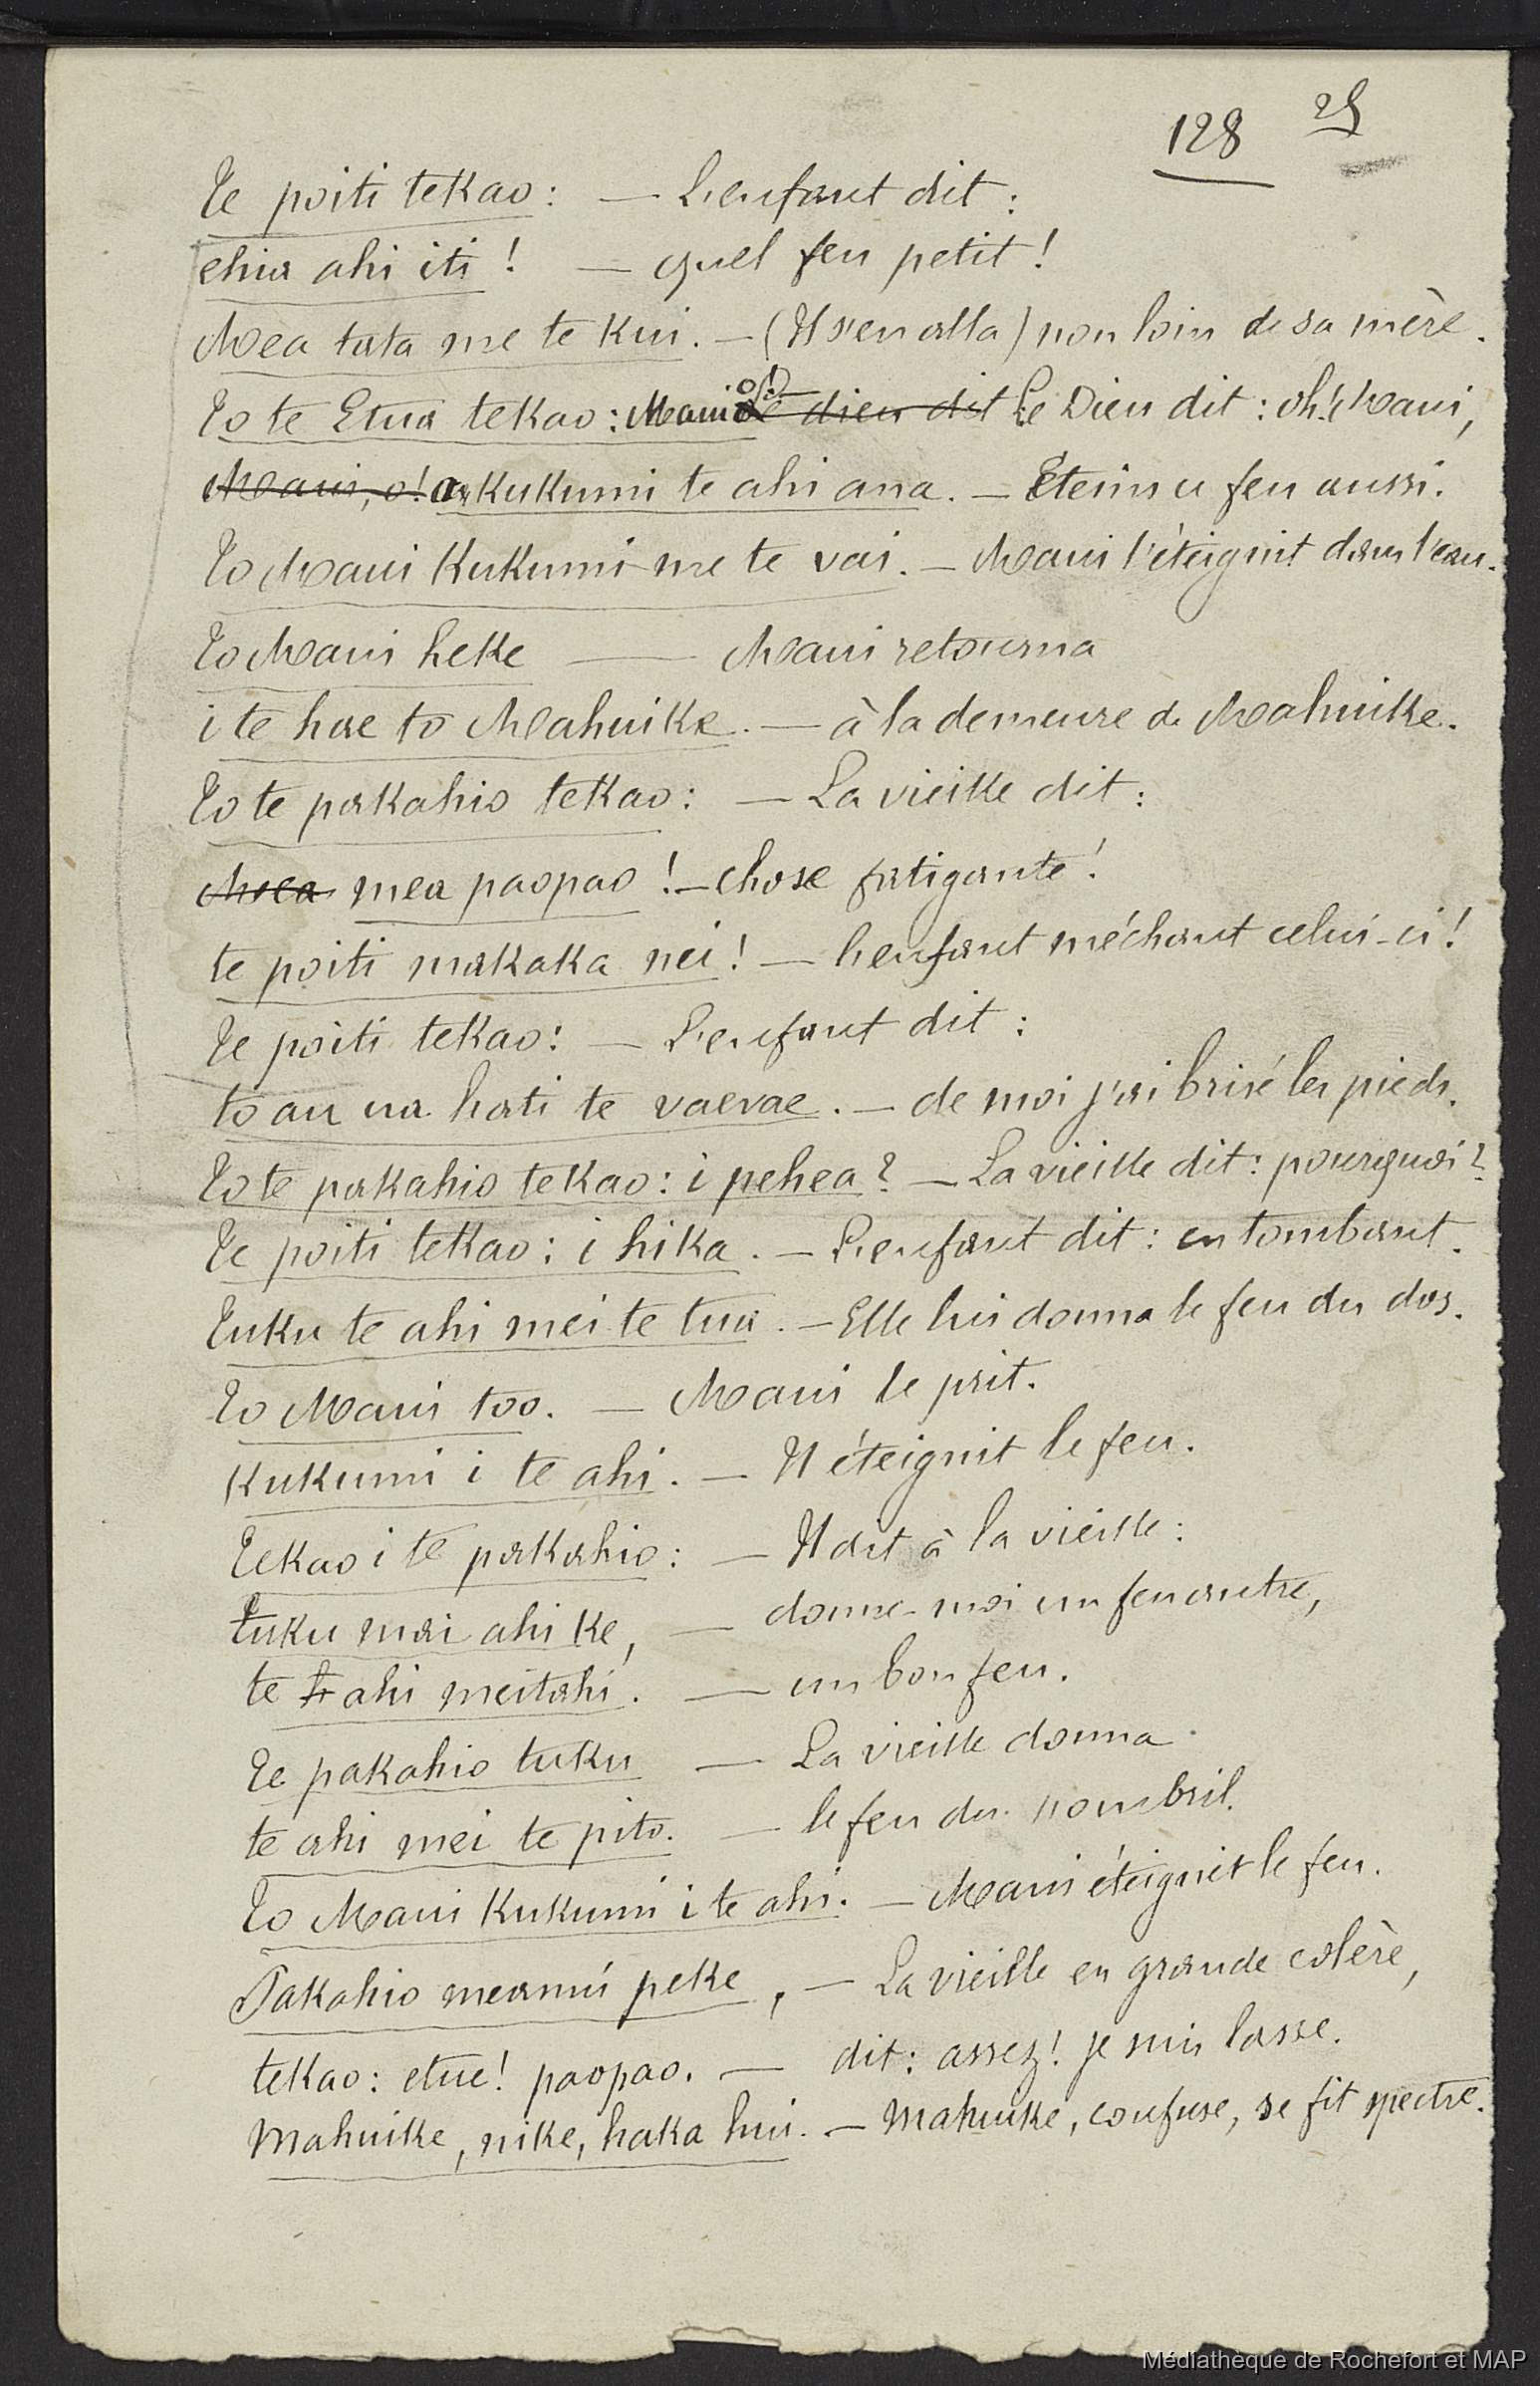 128 25
Te poiti tekao : — L'enfant dit :
ehua ahi iti ! — quel feu petit !
Mea tata me te kui. — (Il s'en alla) non loin de sa mère.
To te Etua tekao : Maui o ! — Le dieu dit Le Dieu dit : oh ! Maui,
Maui, o ! a kukumi te ahi ana. — Eteins ce feu aussi.
To Maui kukumi me te vai. — Maui l'éteignit dans l'eau.
To Maui heke — Maui retourna
i te hae to Mahuike. — à la demeure de Mahuike.
To te pakahio tekao : — La vieille dit :
Mea mea paopao ! — chose fatigante !
te poiti makaka nei ! — L'enfant méchant celui-ci !
Te poiti tekao : — L'enfant dit :
to au ua hati te vaevae. — de moi j'ai brisé les pieds.
To te pakahio tekao : i pehea ? — La vieille dit : pourquoi ?
Te poiti tekao : i hika. — L'enfant dit : en tombant.
Tuku te ahi mei te tua. — Elle lui donna le feu du dos.
To Maui too. — Maui le prit.
Kukumi i te ahi. — Il éteignit le feu.
Tekao i te pakahio : — Il dit à la vieille :
tuku mai ahi ke, — donne-moi un feu autre,
te ahi meitahi. — un bon feu.
Te pakahio tuku — La vieille donna
te ahi mei te pito. — le feu du nombril.
To Maui kukumi i te ahi. — Maui éteignit le feu.
Pakahio meamui peke, — La vieille en grande colère,
tekao : etue ! paopao. — dit : assez ! je suis lasse.
Mahuike, nike, haka hui. — Mahuike, confuse, se fit spectre.
Médiathèque de Rochefort et MAP